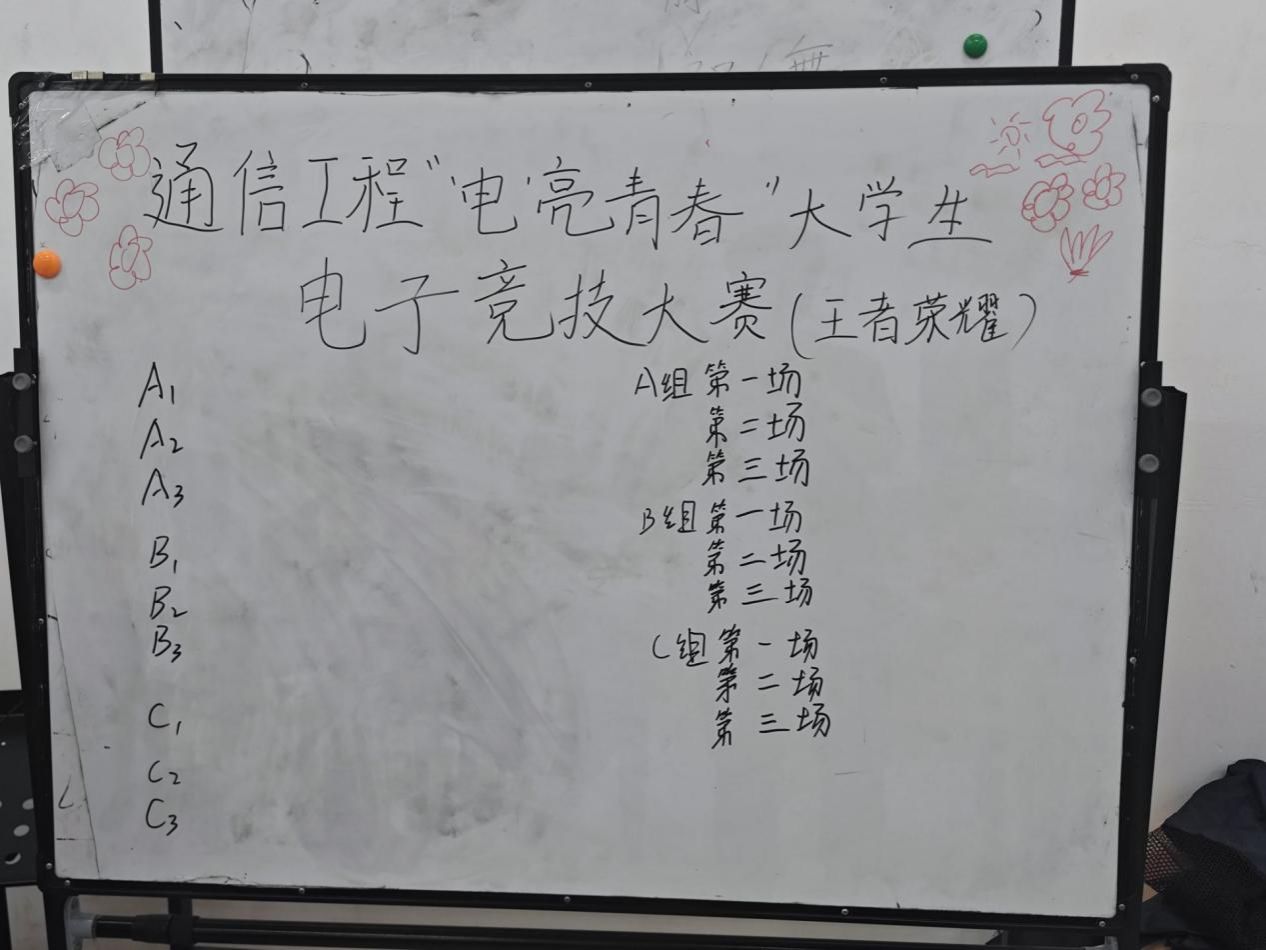 通信工程“电亮青春”大学生
电子竞技大赛(王者荣耀)
A1
A2
A3
B1
B2
B3
C1
C2
C3
A组 第一场
第二场
第三场
B组 第一场
第二场
第三场
C组 第一场
第二场
第三场